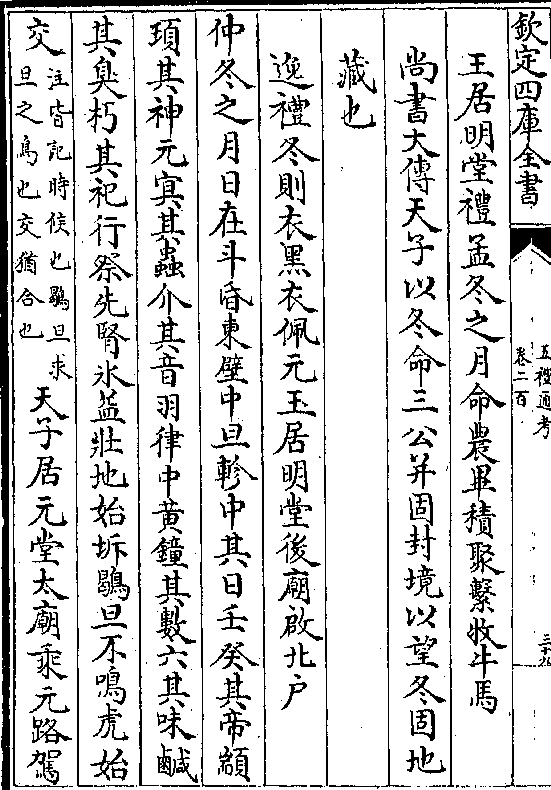 欽定四庫全書
五禮通考
卷二百
三十九
王居明堂禮孟冬之月命農畢積聚繫牧牛馬
尚書大傳天子以冬命三公并固封境以望冬固地
藏也
逸禮冬則衣黑衣佩元玉居明堂後廟啟北户
仲冬之月日在斗昏東壁中旦軫中其日壬癸其帝顓
頊其神元㝠其蟲介其音羽律中黄鐘其數六其味鹹
其臭朽其祀行祭先腎氷益壯地始坼鶡旦不鳴虎始
交注皆記時候也鶡旦求旦之鳥也交猶合也天子居元堂太廟乘元路駕